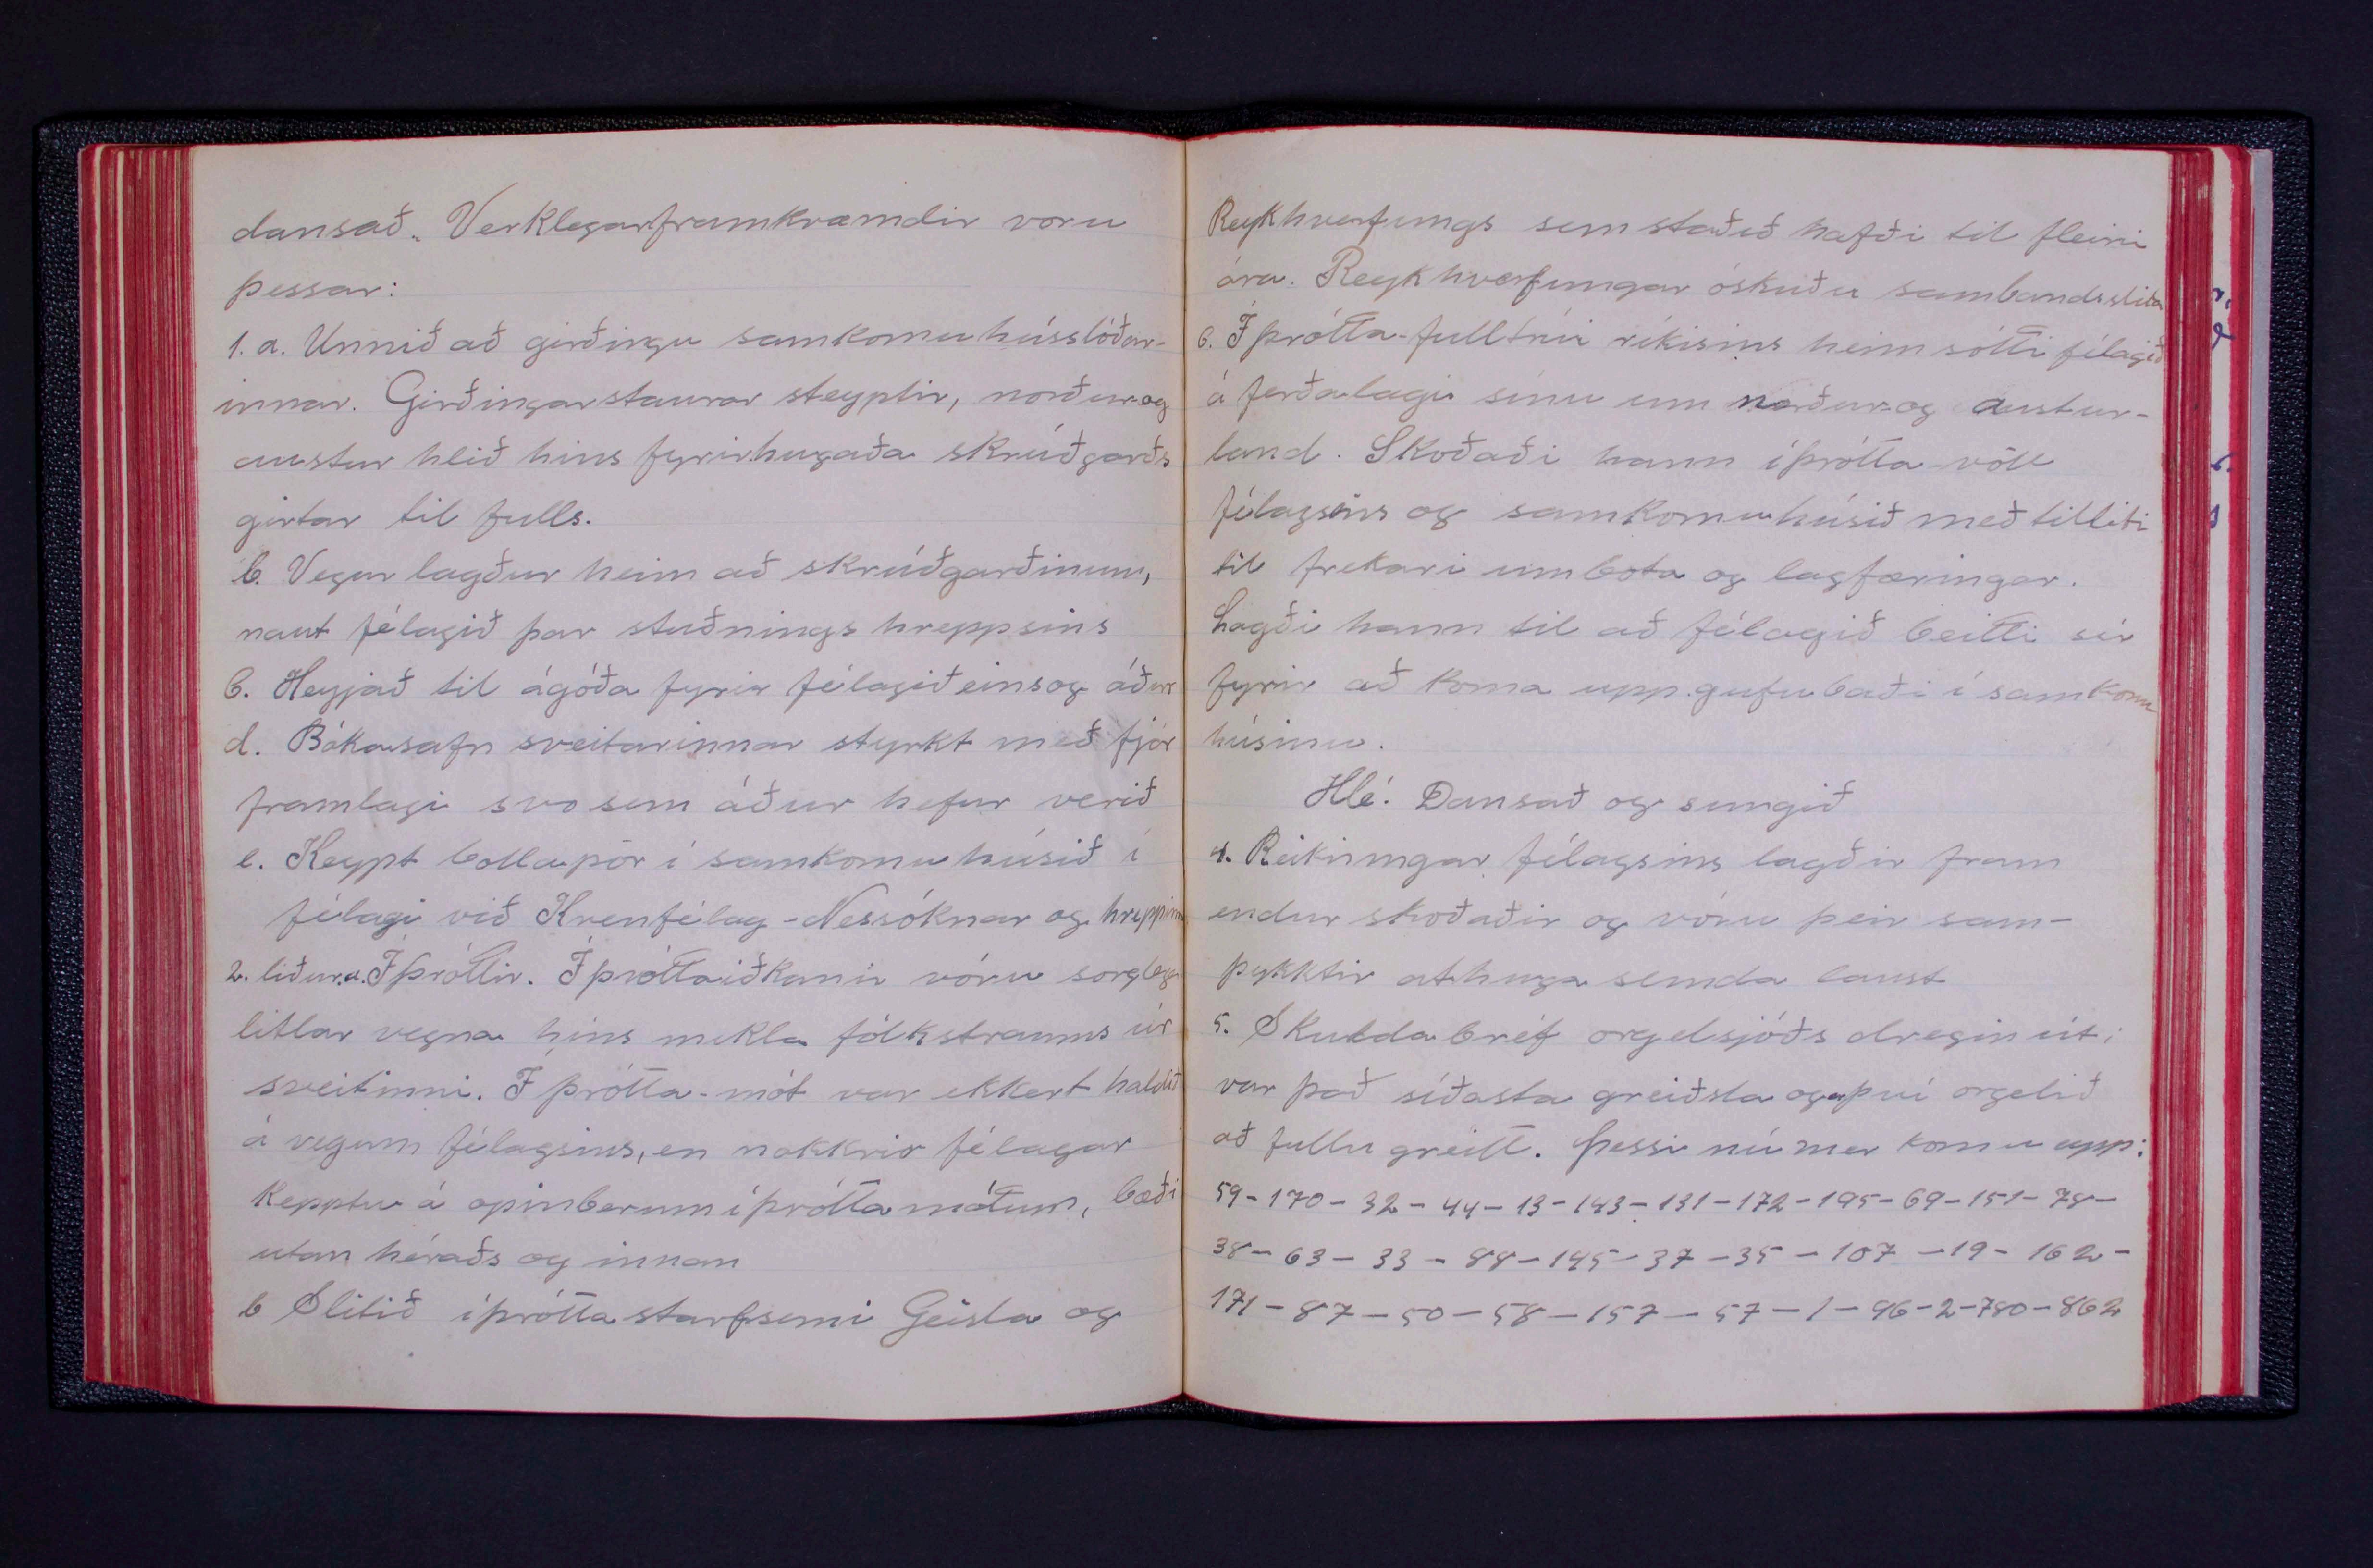 dansað. Verklegarframkvæmdir voru
þessar:
1. a. Unnið að girðingu samkomuhússlóðar-
innar. Girðingarstaurar steyptir, norður og
austur hlið hins fyrirhugaða skrúðgarðs
girtar til fulls.
b. Vegur lagður heim að skrúðgarðinum,
naut félagið þar stuðnings hreppsins
C. Heyjað til ágóða fyrir félagið eins og áður
d. Bókasafn sveitarinnar styrkt með fjár
framlagi svo sem áður hefur verið
e. Keypt bollapör í samkomuhúsið í
félagi við Kvenfélag-Nessóknar og hreppinn
2. liður. a. Íþróttir. Íþróttaiðkanir vóru sorglega
litlar vegna hins mikla fólkstraums úr
sveitinni. Íþrótta-mót var ekkert haldið
á vegum félagsins, en nokkrir félagar
kepptu á opinberum íþróttamótum, bæði
utan héraðs og innan
b Slitið íþróttastarfsemi Geisla og
Reykhverfungs sem staðið hafði til fleiri
ára. Reykhverfungar óskuðu sambandsslita
6. Íþrótta-fulltrúi ríkisins heimsótti félagið
á ferðalagi sínu um norður og austur-
land. Skoðaði hann íþrótta völl
félagsins og samkomuhúsið með tilliti
til frekari umbota og lagfæringar.
Lagði hann til að félagið beitti sér
fyrir að koma upp gufubaði í samkomu
húsinu.
Hlé. Dansað og sungið
4. Reikningar félagsins lagðir fram
endur skoðaðir og vóru þeir sam-
þykktir athuga semda laust
5. Skuldabréf orgelsjóðs dregin út;
var það síðasta greiðsla og því orgelið
að fullu greitt. Þessi númer komu upp:
59-170-32-44-13-143-131-172-195-69-151-78-
38-63-33-88-145-37-35-107-19-162-
171-87-50-58-157-57-1-96-2-780-862